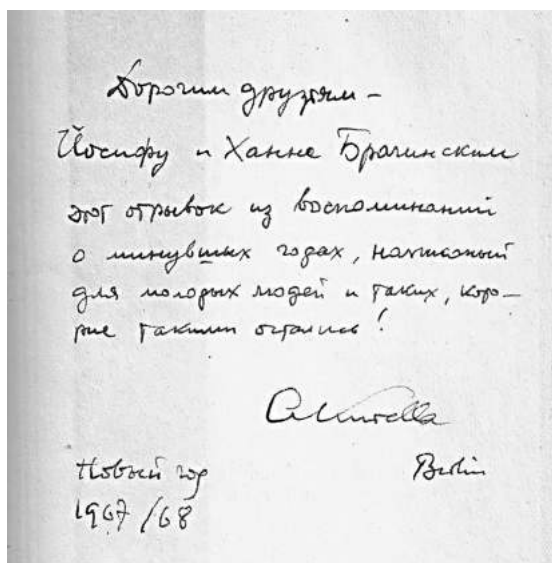 Дорогим друзьям –
Йосифу и Ханне Брагинским
этот отрывок из воспоминаний
о минувших годах, написаный
для молодых людей и таких, кото–
рые такими остались!
AKurella
Новый год Berlin
1967/68